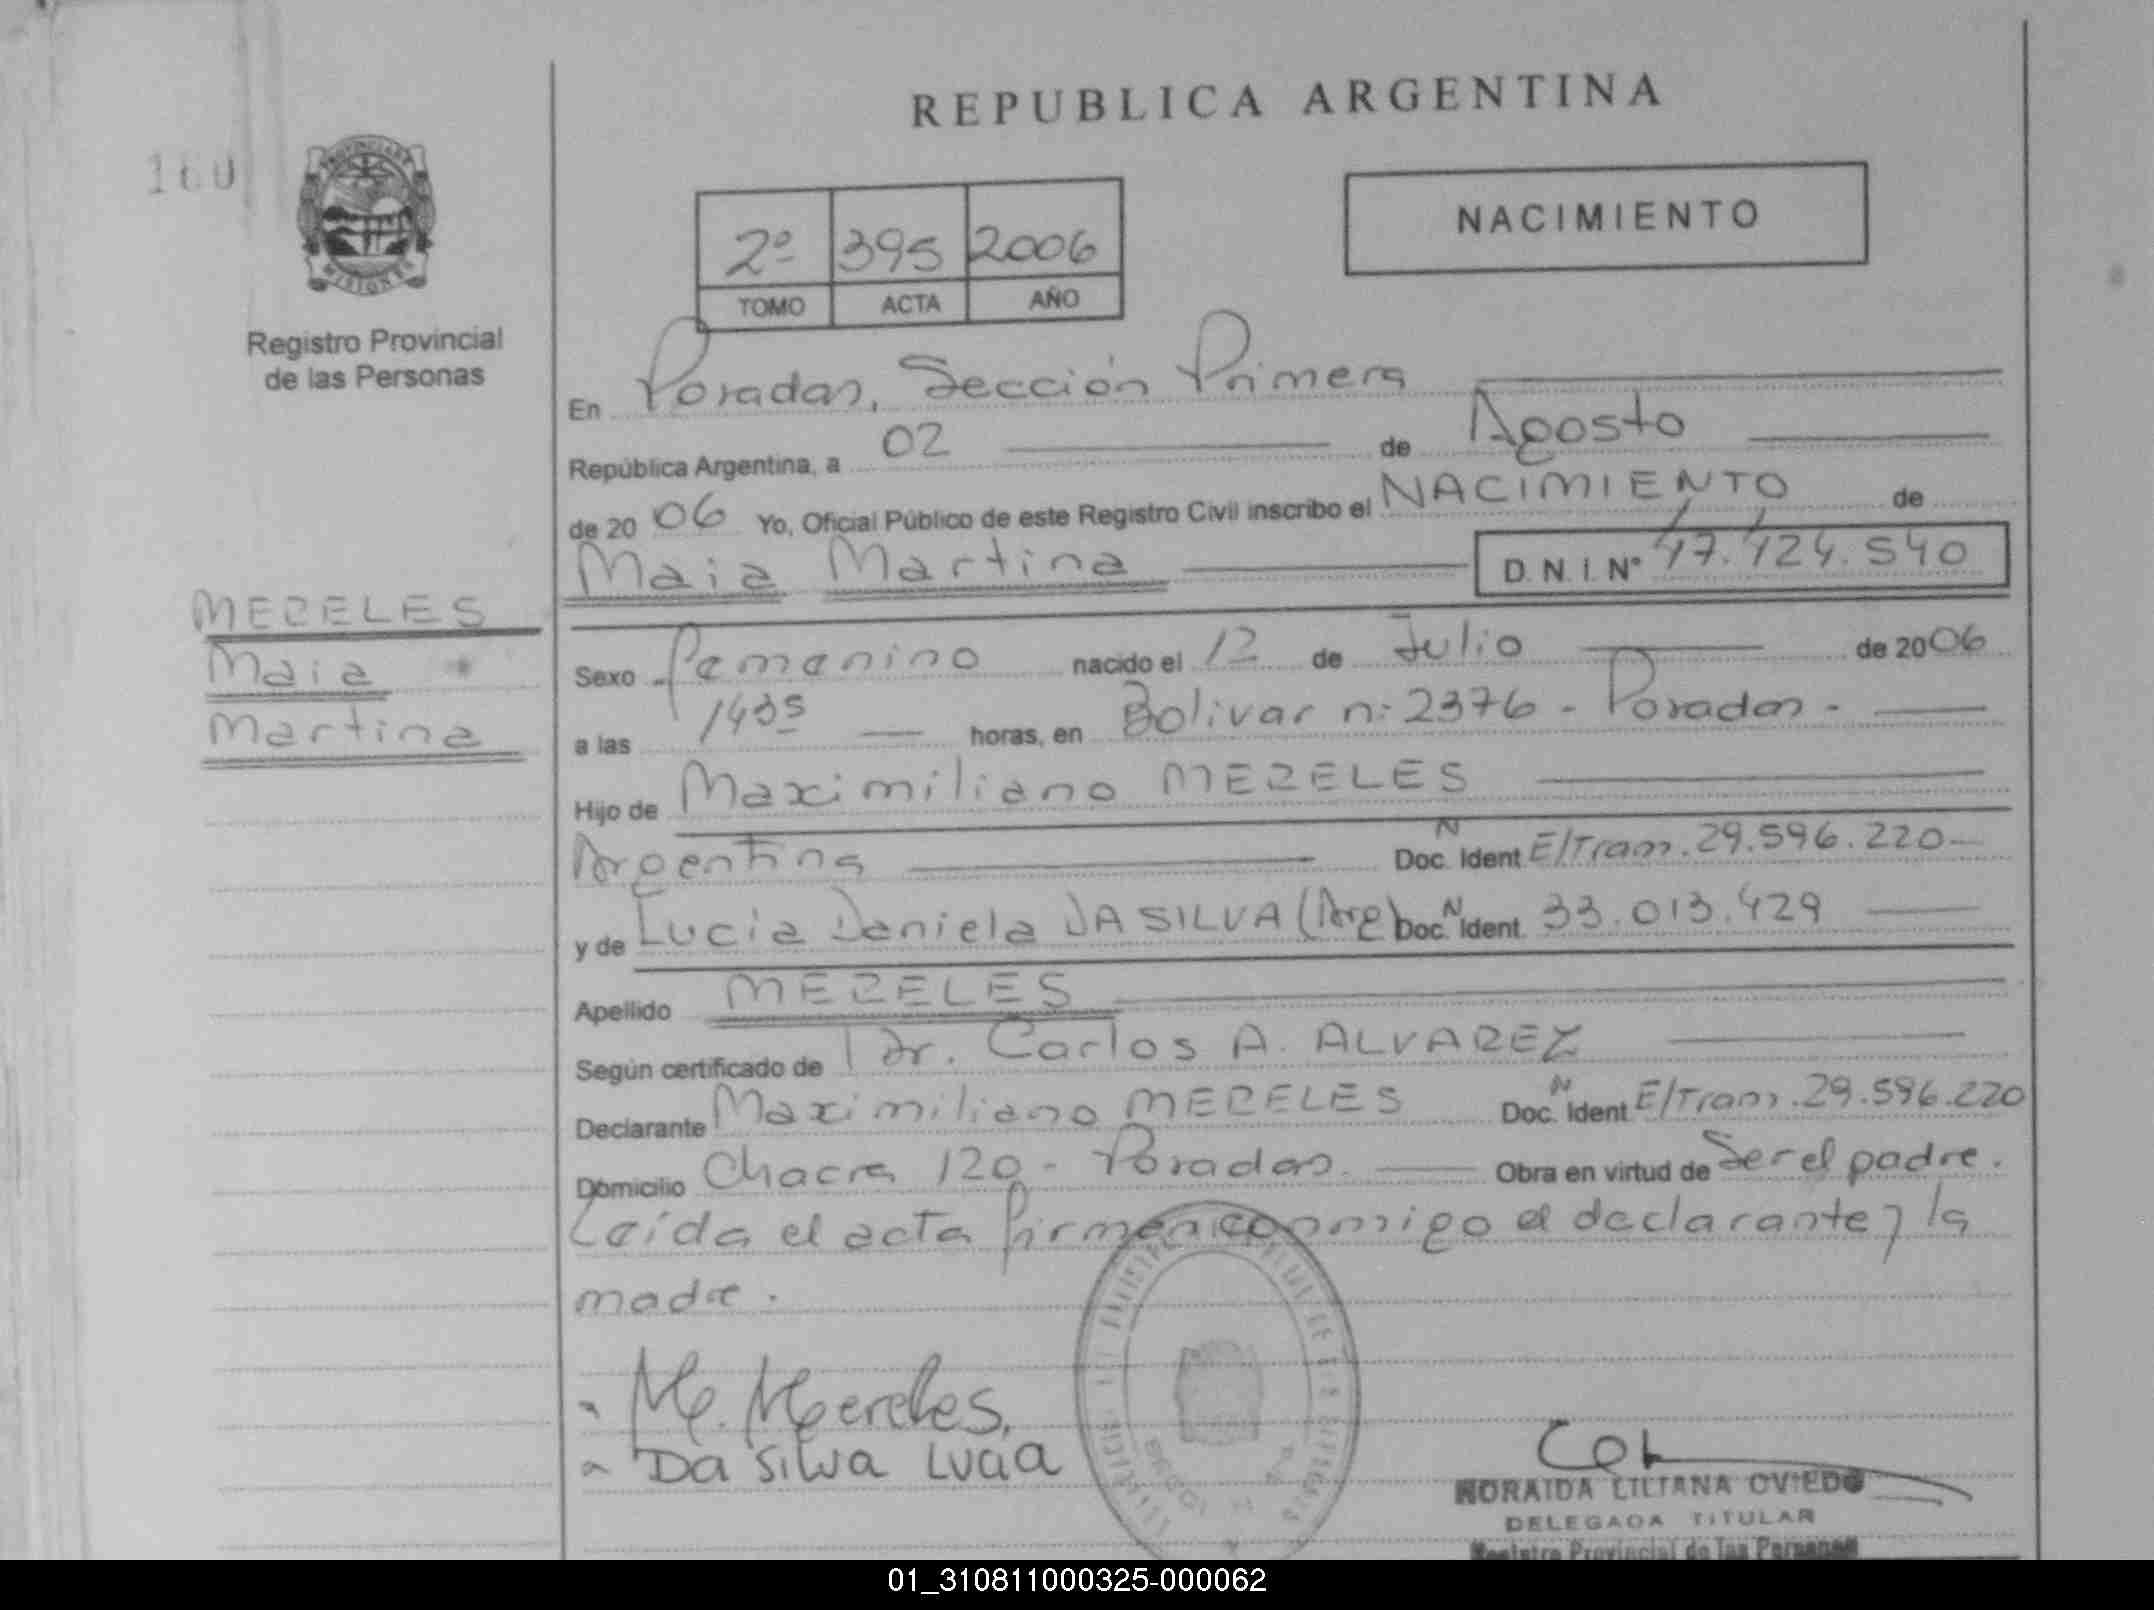 REPUBLICA ARGENTINA
160
PROVINCIA DE
MISIONES
Registro Provincial
de las Personas
2º 395 2006
TOMO ACTA AÑO
NACIMIENTO
En Posadas, Sección Primera
República Argentina, a 02 de Agosto
de 2006 Yo, Oficial Público de este Registro Civil inscribo el NACIMIENTO de
Maia Martina D.N.I. Nº 47.124.540
MERELES
Maia
Martina
Sexo Femenino nacido el 12 de Julio de 2006
a las 1435 horas, en Bolivar n: 2376 - Posadas -
Hijo de Maximiliano MERELES
Argentina Doc. N Ident E/Tram. 29.596.220
y de Lucia Daniela DA SILVA (Arg) Doc. N Ident. 33.013.429
Apellido MERELES
Según certificado de Dr. Carlos A. ALVAREZ
Declarante Maximiliano MERELES Doc. N Ident E/Tram. 29.596.220
Domicilio Chacra 120 - Posadas. Obra en virtud de Ser el padre.
Leída el acta firman conmigo el declarante y la
madre.
M. Mereles.
Da Silva Lucia
NORAIDA LILIANA OVIEDO
DELEGADA TITULAR
Registro Provincial de las Personas
01_310811000325-000062